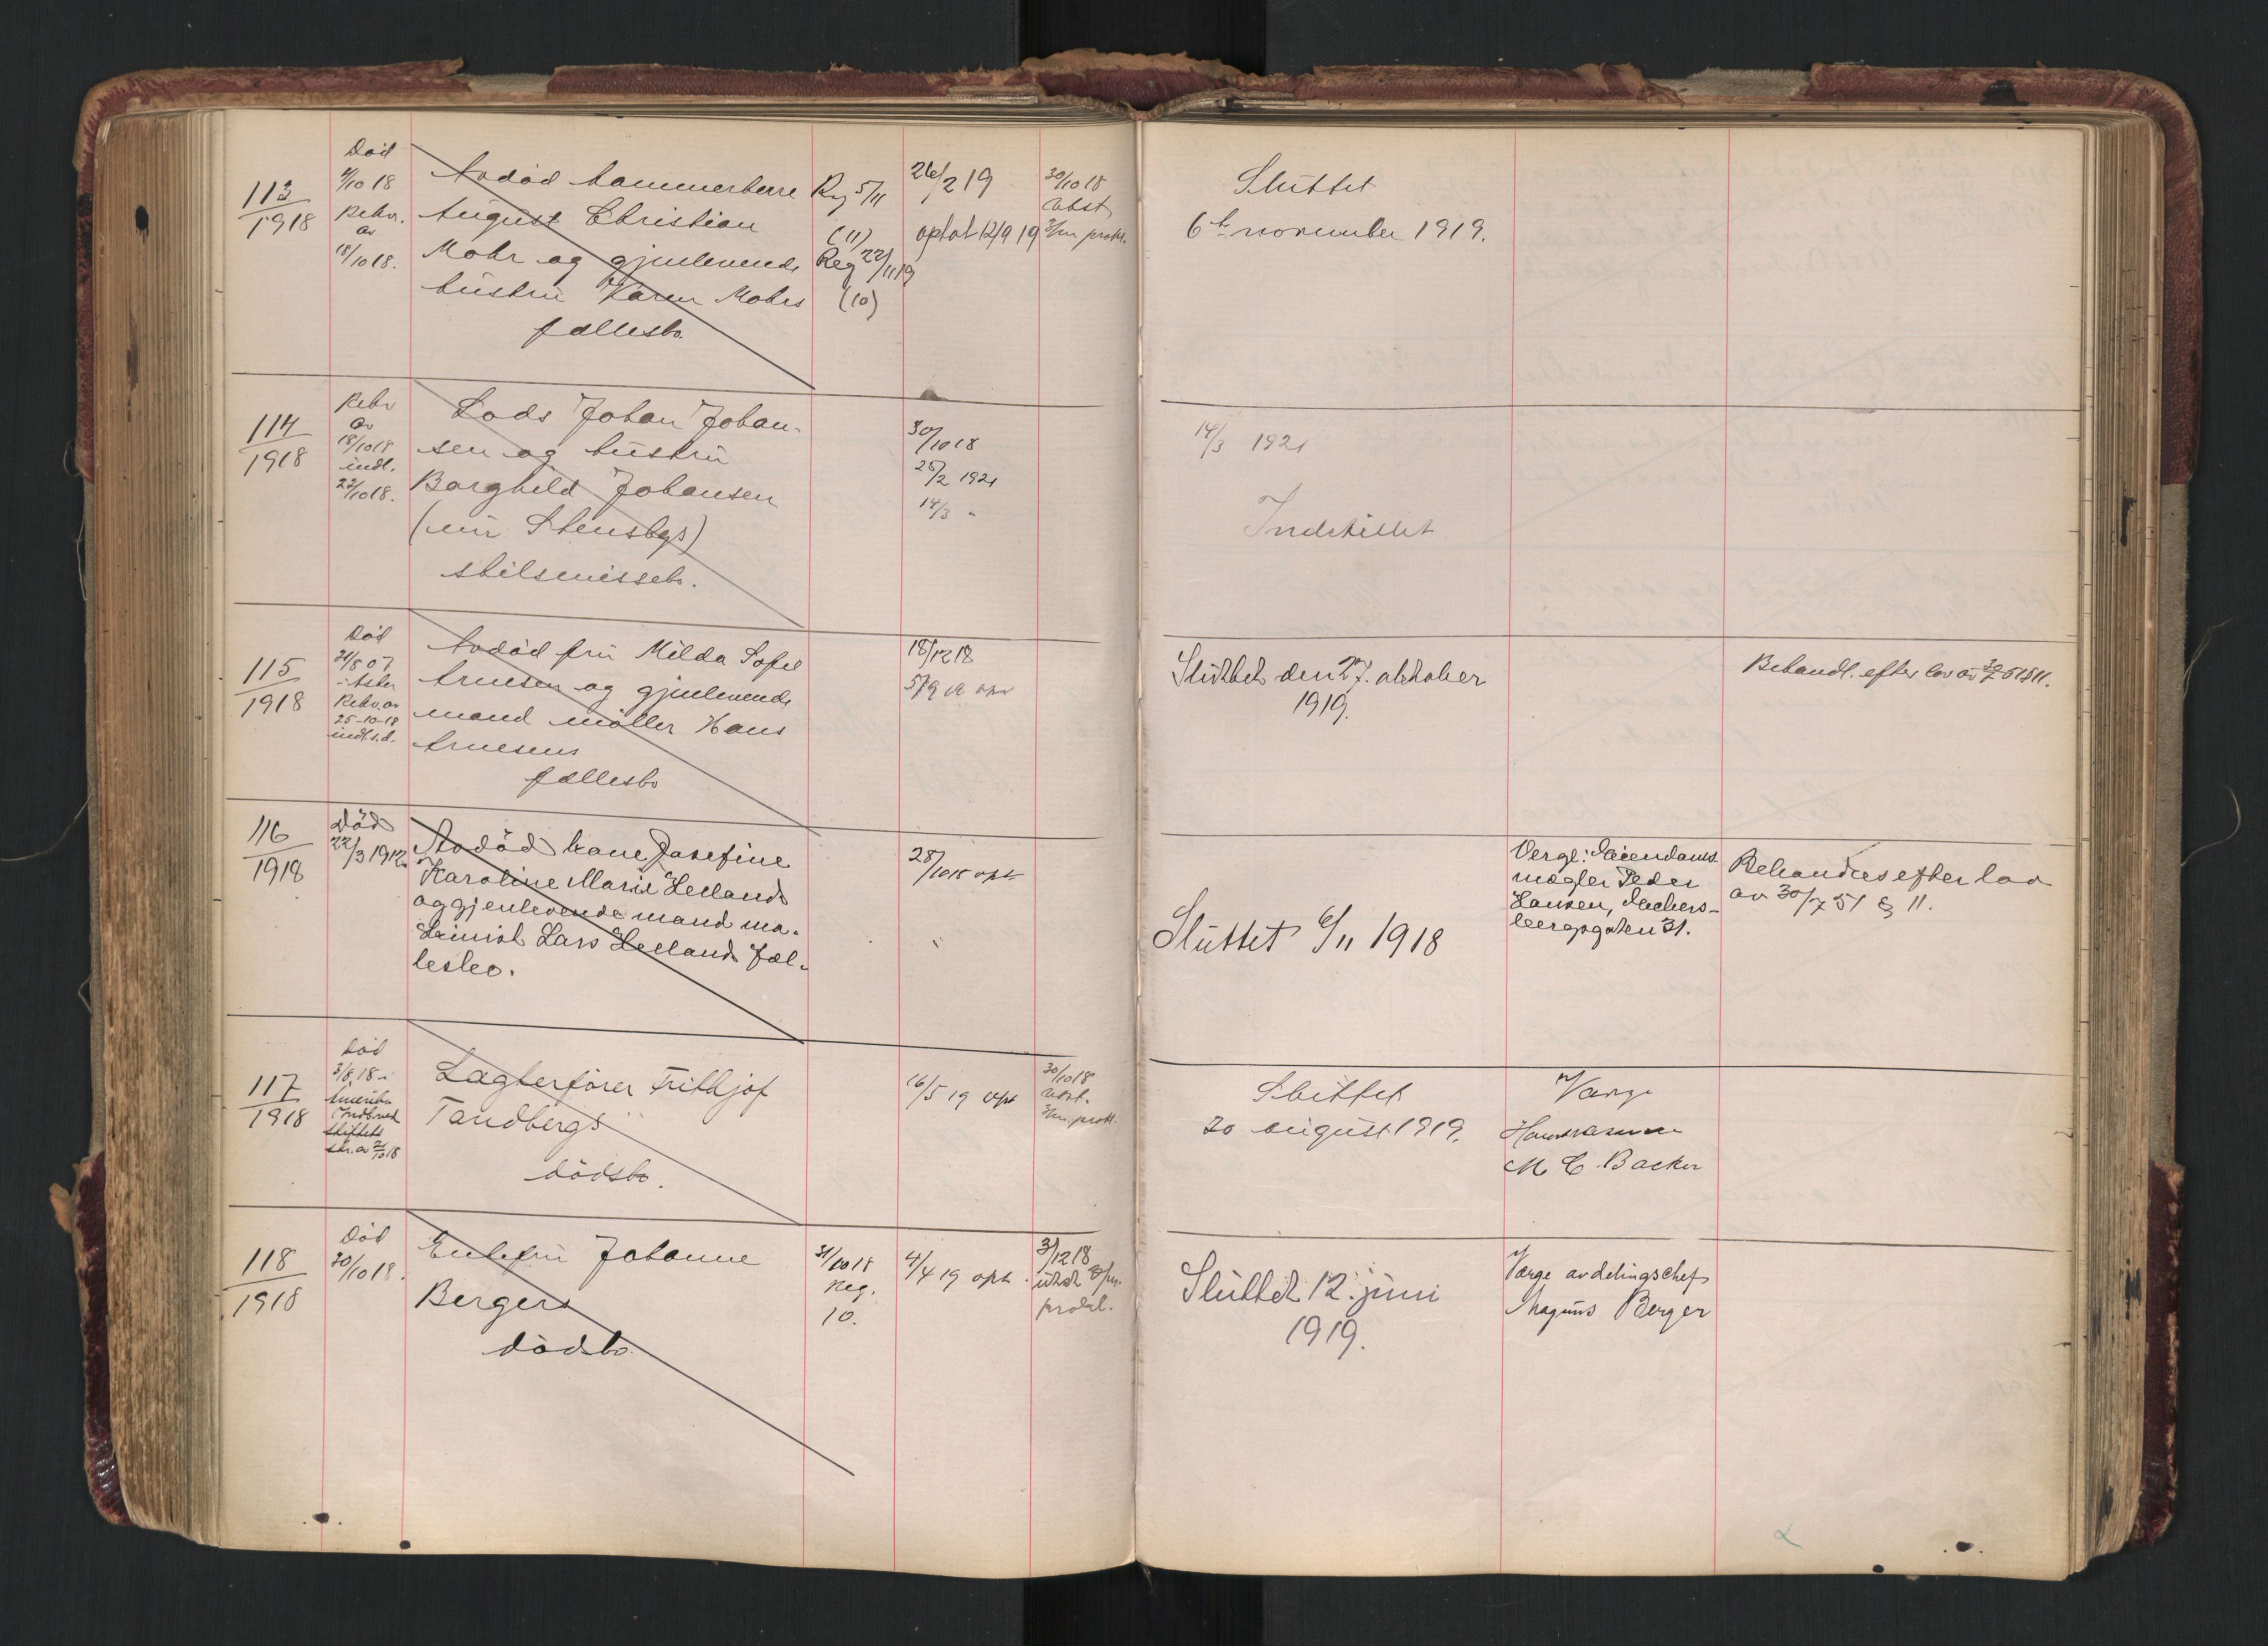 113
1918
Død
4/10 18
Rekv.
av
18/10 18.
Avdød kammerherre
August Christian
Mohr og gjenlevende
hustru Karen Mohrs
fællesbo.
Reg 5/11
(11)
Reg 22/11 19
(10)
26/2 19
optat 12/9 19
30/10 18
utst
prokl.
Sluttet
6te november 1919.
114
1918
Rekv
av
18/10 18
indl.
22/10 18.
Lods Johan Johan-
sen og hustru
Borghild Johansen
(nu Stensbys)
skilsmissebo.
30/10 18
25/2 1921
14/3 "
14/3 1921
Indstillet
115
1918
Død
31/8 07
i Asker
Rekv. av
25-10-18
indl. s.d.
Avdød fru Milda Sofie
Arnesen og gjenlevende
mand møller Hans
Arnesens
fællesbo
18/12 18
5/9 19 opt
Sluttet den 27. oktober
1919.
Behandl. efter lov av 30/7 51 § 11.
116
1918
Død
22/3 1912
Avdød kone Josefine
Karoline Marie Helland
og gjenlevende mand ma-
skinist Lars Helland fæl-
lesbo.
28/10 18 opt
Sluttet 6/11 1918
Verge: Eiendoms
mægler Peder
Hansen,
31.
Behandles efter lov
av 30/7 51 § 11.
117
1918
Død
3/8 18 i
Amerika
Indb. ved
skiftets
skr. av 2/10 18
Lagterfører Frithjof
Tandbergs
dødsbo.
16/5 19 opt
30/10 18
utst.
prokl.
Sluttet
20 august 1919.
Verge
M C. Backer
118
1918
Død
20/10 18.
Enkefru Johanne
Bergers
dødsbo.
31/10 18
Reg.
10.
4/4 19 opt.
3/12 18
utst
prokl.
Sluttet 12. juni
1919.
Verge avdelingschef
Magnus Berger